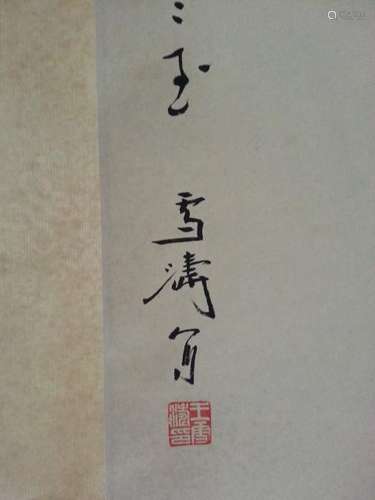 玉
雪濤寫
王雪
濤印